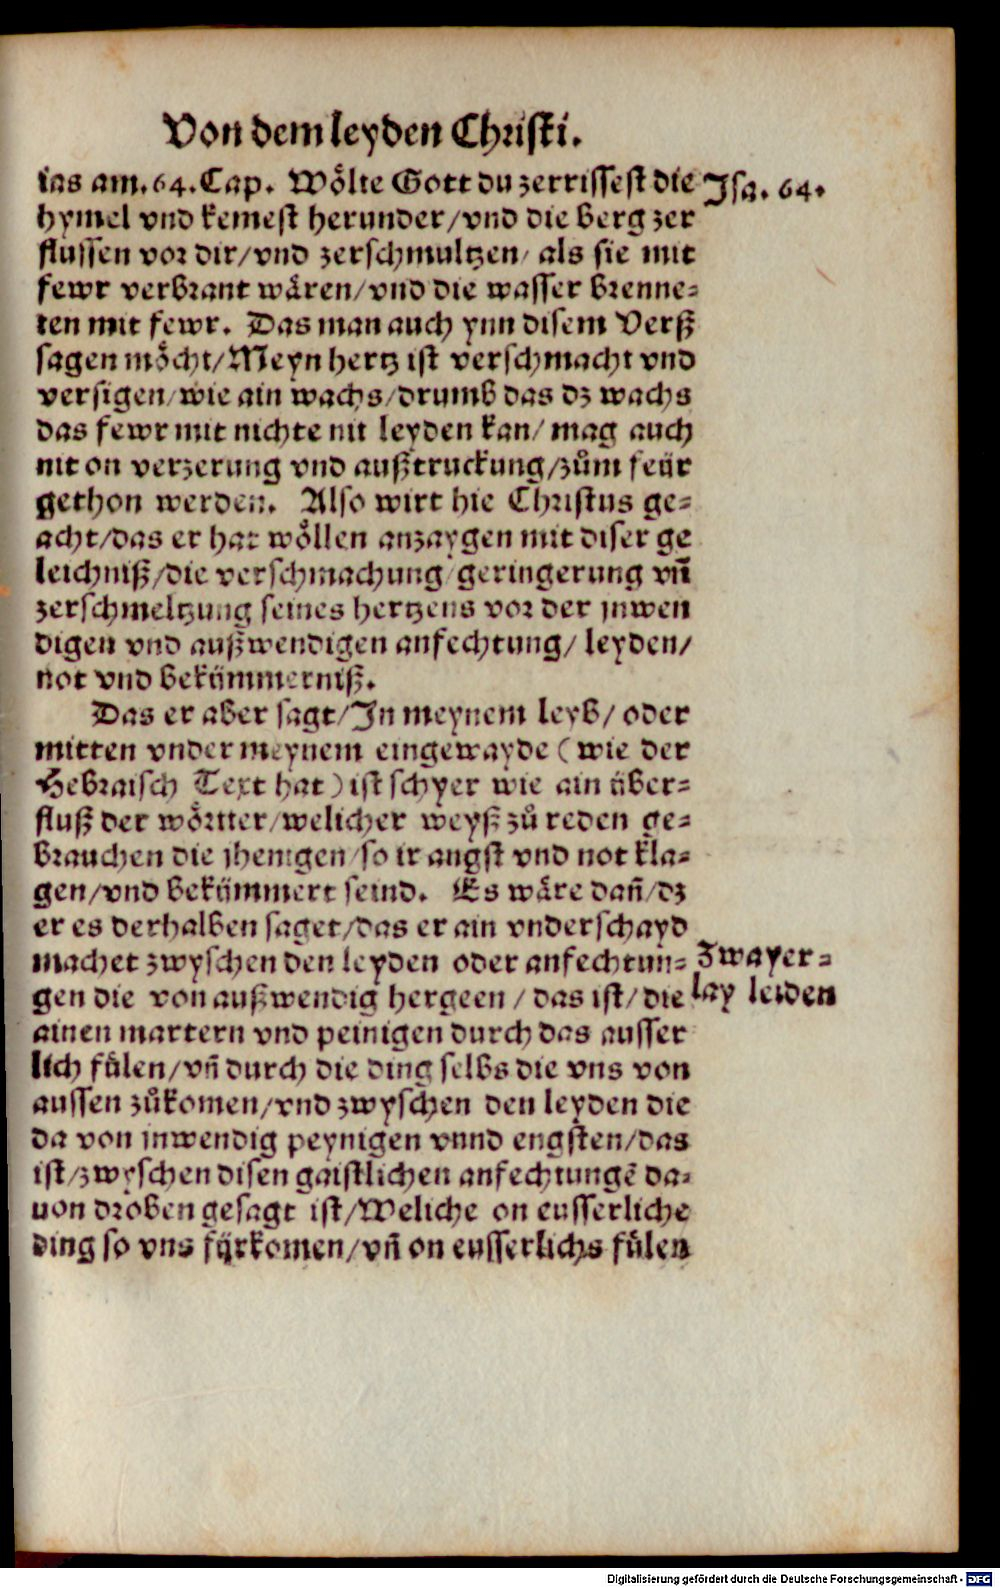 Von dem leyden Christi.
ias am.64.Cap. Wölte Gott du zerrissest die
Jsa. 64.
hymel vnd kemest herunder/vnd die berg zer
flussen vor dir/vnd zerschmultzen/ als sie mit
fewr verbrant wären/vnd die wasser brenne-
ten mit fewr. Das man auch ynn disem Verß
sagen möcht/Meyn hertz ist verschmacht vnd
versigen/wie ain wachs/drumb das dz wachs
das fewr mit nichte nit leyden kan/ mag auch
nit on verzerung vnd außtruckung/zům feür
gethon werden. Also wirt hie Christus ge-
acht/das er hat wöllen anzaygen mit diser ge
leichniß/die verschmachung/geringerung vñ
zerschmeltzung seines hertzens vor der jnwen
digen vnd außwendigen anfechtung/ leyden/
not vnd bekümmerniß.
Das er aber sagt/Jn meynem leyb/ oder
mitten vnder meynem eingewayde (wie der
Hebraisch Text hat) ist schyer wie ain über-
fluß der wörtter/welicher weyß zů reden ge-
brauchen die jhenigen/so ir angst vnd not kla-
gen/vnd bekümmert seind. Es wäre dañ/dz
er es derhalben saget/das er ain vnderschayd
machet zwyschen den leyden oder anfechtun-
Zwayer-
gen die von außwendig hergeen / das ist/ die
lay leiden
ainen martern vnd peinigen durch das ausser
lich fůlen/vñ durch die ding selbs die vns von
aussen zůkomen/vnd zwyschen den leyden die
da von jnwendig peynigen vnnd engsten/das
ist/zwyschen disen gaistlichen anfechtungẽ da-
uon droben gesagt ist/Weliche on eusserliche
ding so vns fürkomen/vñ on eusserlichs fůlen
Digitalisierung gefördert durch die Deutsche Forschungsgemeinschaft - DFG